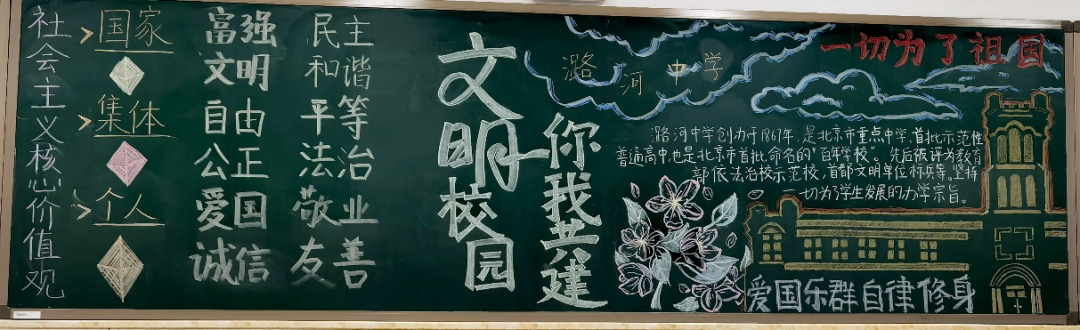 社会主义核心价值观
国家
集体
个人
富强 民主
文明 和谐
自由 平等
公正 法治
爱国 敬业
诚信 友善
文明校园
你我共建
潞河中学
一切为了祖国
潞河中学创办于1867年,是北京市重点中学,首批示范性
普通高中,也是北京市首批命名的"百年学校"。先后被评为教育
部依法治校示范校,首都文明单位标兵等,坚持
一切为了学生发展的办学宗旨。
爱国乐群自律修身